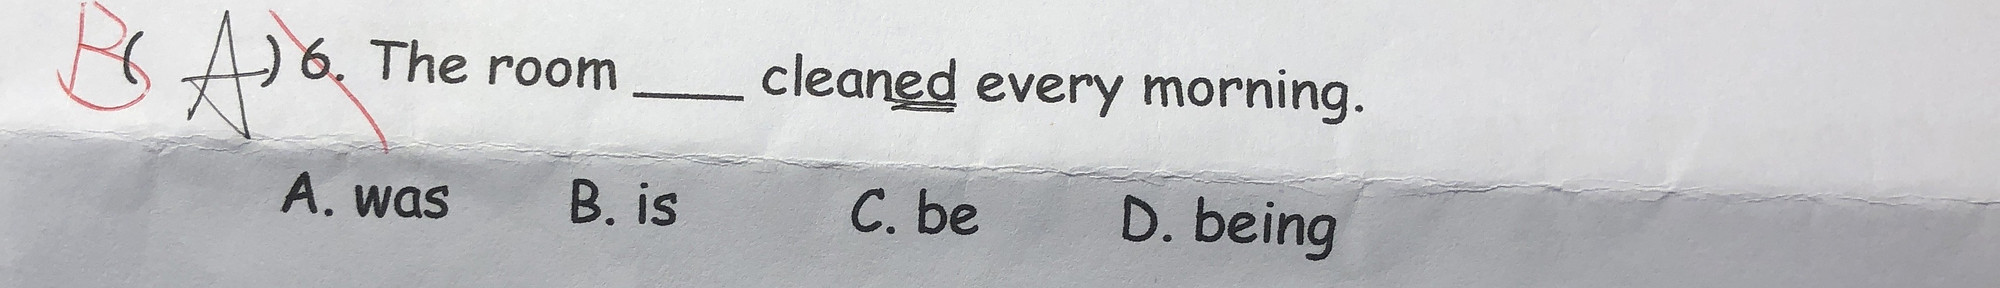 B ( A ) 6. The room ____ cleaned every morning.
A. was B. is C. be D. being